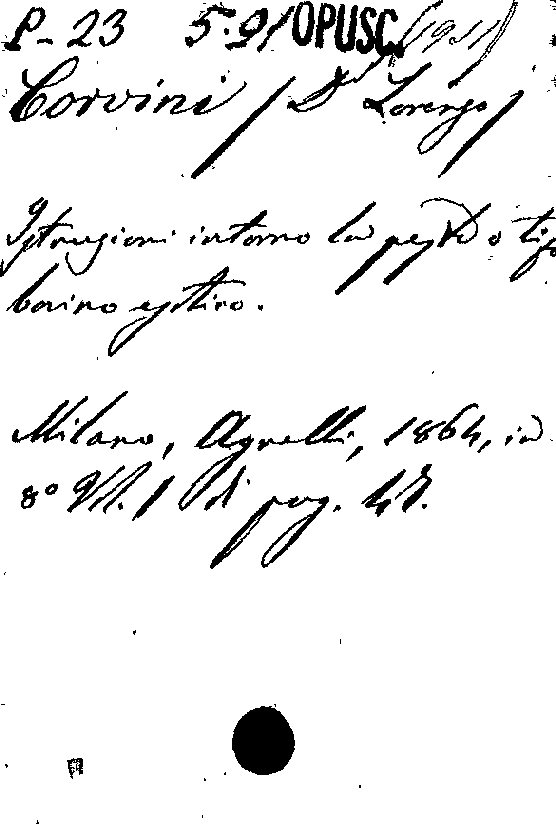 P-23 5.9/ OPUSC.
Corvini / Dr Lorenzo /
Istruzioni intorno la peste o tifo
bovino estivo.
Milano, Agnelli, 1864, in
8° Vol. 1 di pag. 47.